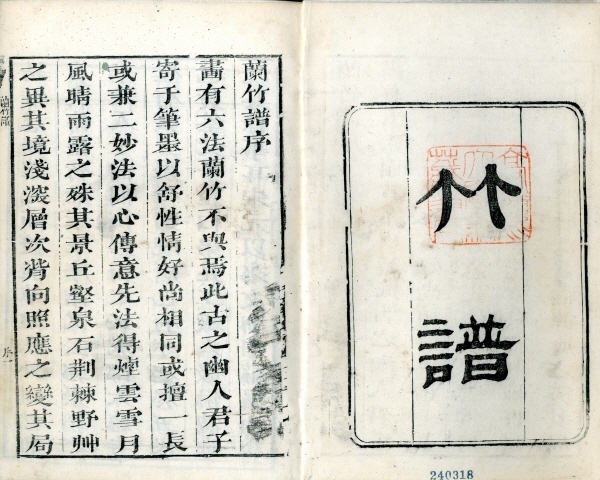 竹
譜
240318
蘭竹譜序
畵有六法蘭竹不與焉此古之幽人君子
寄于筆墨以舒性情好尚相同或擅一長
或兼二妙法以心傳意先法得煙雲雪月
風晴雨露之殊其景丘壑泉石荆棘野艸
之異其境淺深層次背向照應之變其局
蘭竹譜
序一